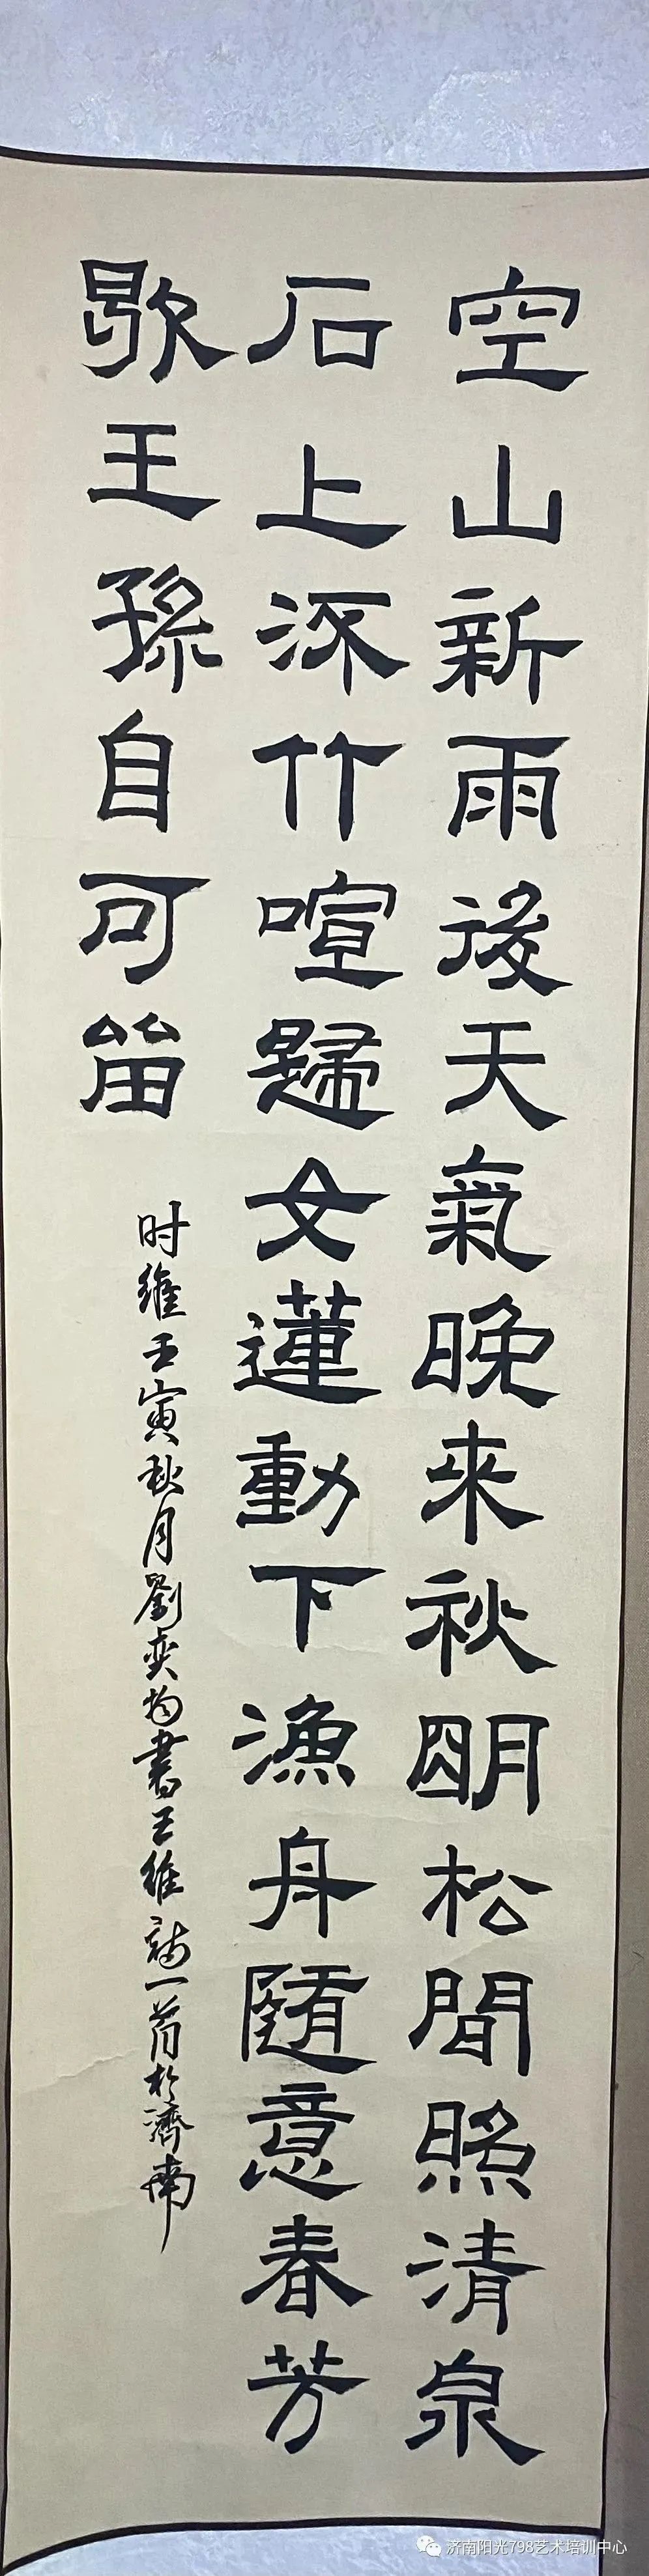 空山新雨後天氣晚來秋明松間照清泉
石上流竹喧歸女蓮動下漁舟隨意春芳
歇王孫自可留
时維壬寅秋月劉奕書王維詩一首於濟南
济南阳光798艺术培训中心